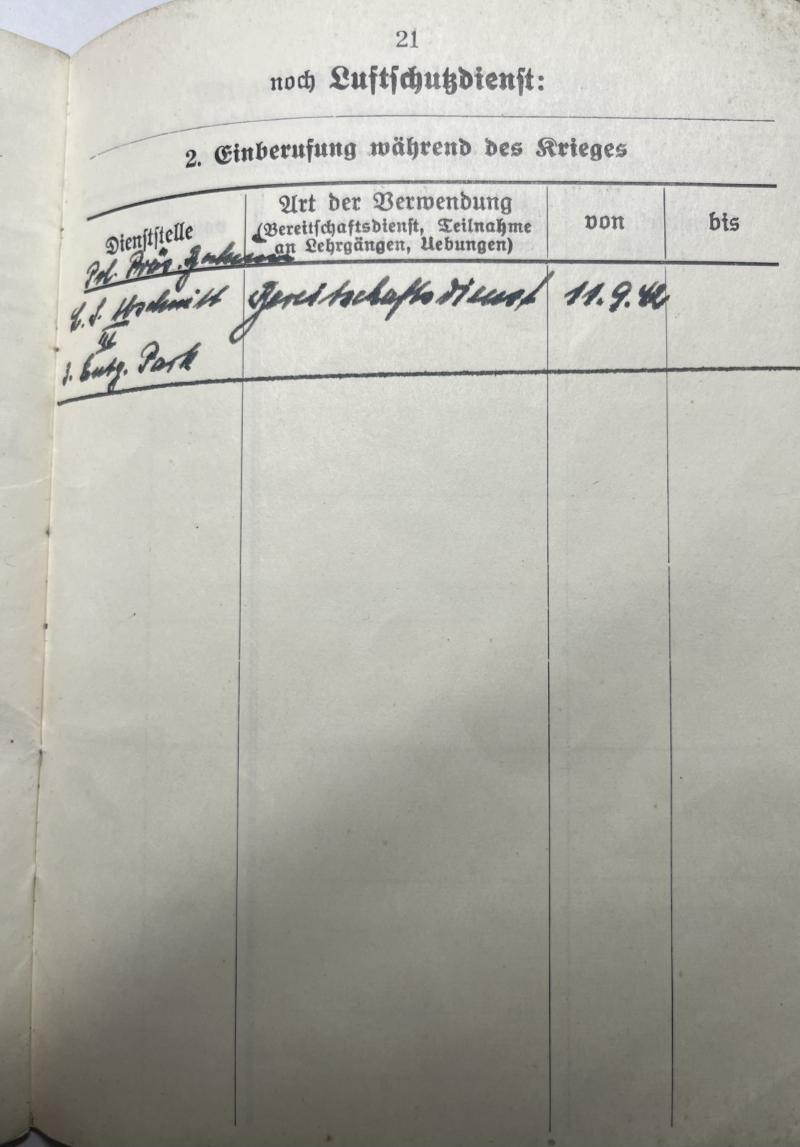 21
noch Luftschutzdienst:
2. Einberufung während des Krieges
Dienststelle
Art der Verwendung
(Bereitschaftsdienst, Teilnahme
an Lehrgängen, Uebungen)
von
bis
Pol. Präs.
L. S. Abschnitt Bereitschaftsdienst 11.9.42
3. Entg. Park